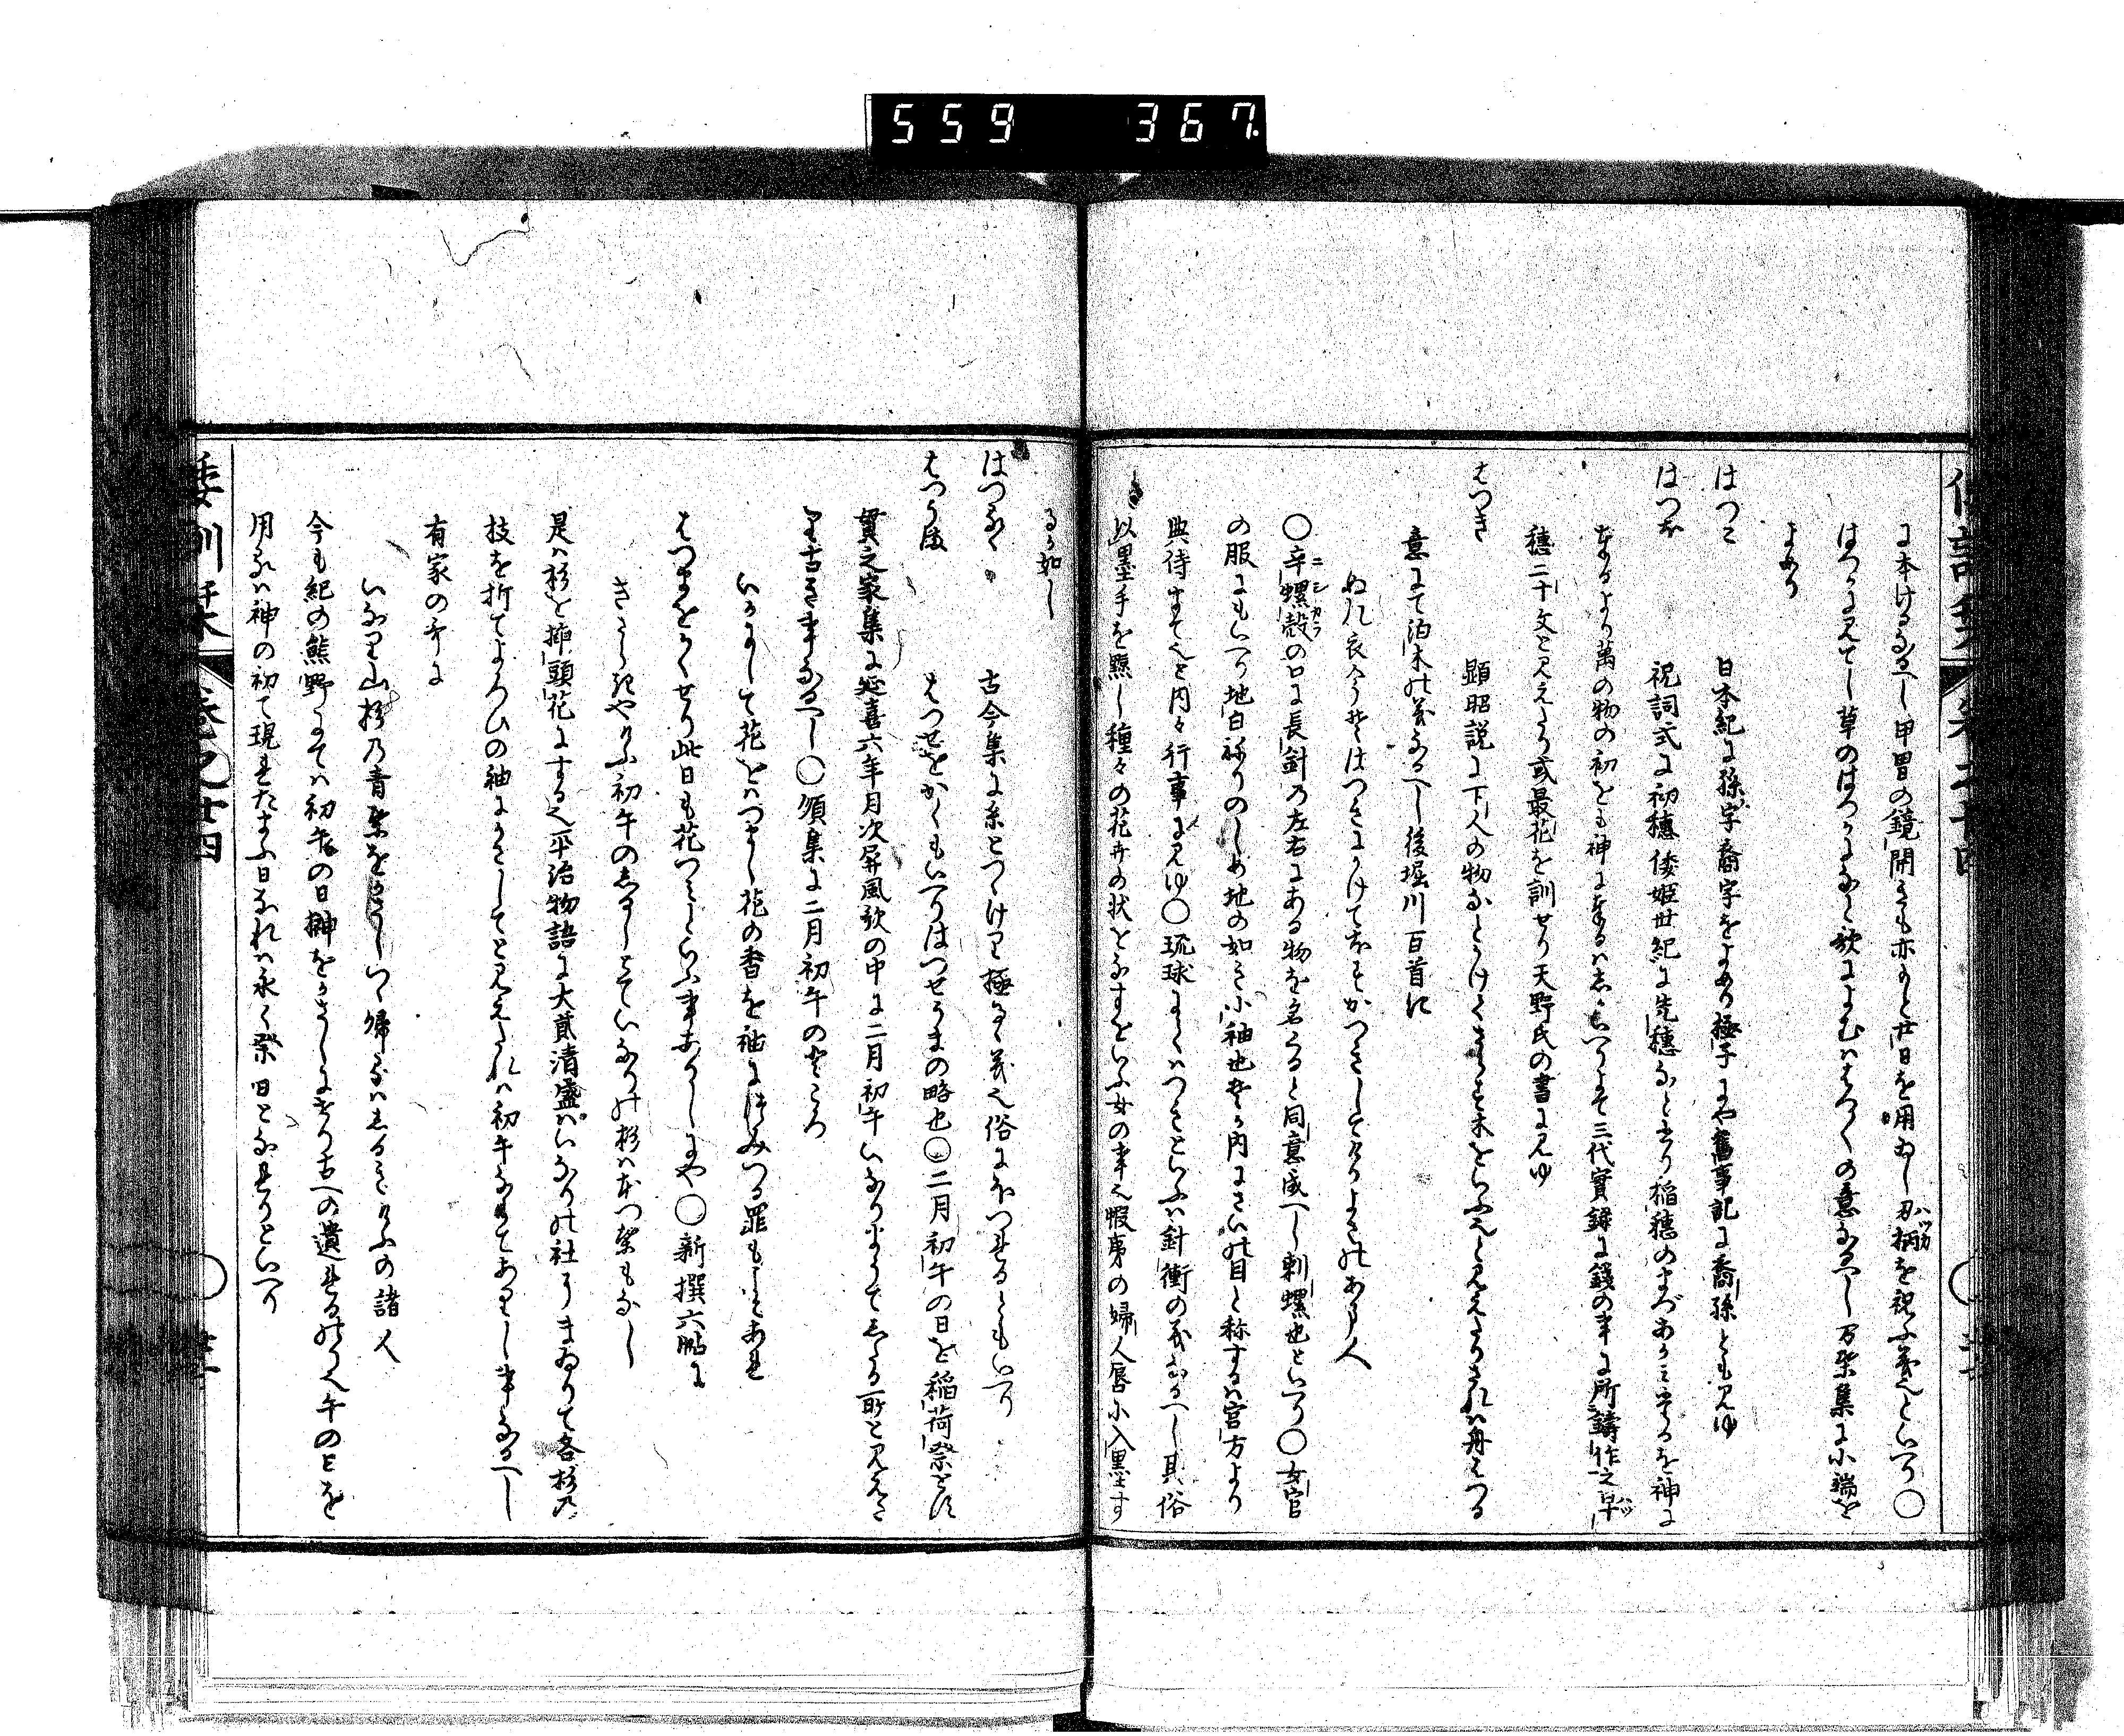 559 367
に本けるなるへし甲冑の鏡開きも亦もと廿日を用ゐし刃柄を祝ふ義也といへり〇
ハツカ
はつかに見てし草のはつかになと歌によむははつはつの意なるへし万葉集に小端を
よめり
はつこ 日本紀に孫字裔字をよめり極子にや舊事記に裔孫とも見ゆ
はつほ 祝詞式に初穗倭姫世紀に先穗なと書り稲穗のまづあかみたるを神に
奉るより萬の物の初をも神に奉るはしかいへり三代實録に錢の事に所鑄作之早
穗二十文と見えたり或最花を訓せり天野氏の書に見ゆ
はつき 顕昭説に下人の物なとかけてさらす木をいふ也と見えたりされは舟はつる
意にて泊木の義なるへし後堀川百首に
ぬれ衣今うせはつきにかけてほすかつきしてけりよさのあま人
〇辛螺殻の口に長針の左右にある物を名くると同意成へし剌螺也といへり〇女官
ニシカラ
の服にもいへり地白ねりのしめ地の如き小袖也其内にさいの目と称するは宮方より
典侍まて也と内々行事に見ゆ〇琉球にてはつきといふは針衝の義なるへし其俗
以墨手を黥し種々の花卉の状となすをいふ女の事也蝦夷の婦人唇に入墨す
るか如し
はつなく 古今集に糸とつゝけり極なく義也俗にほつれるともいへり
はつう麻 はつせをかくもいへりはつせうまの略也〇二月初午の日を稲荷祭とす
貫之家集に延喜六年月次屏風歌の中に二月初午いなりまうてしたる所と見えた
り古き事なるへし〇頌集に二月初午のところ
いかにして花をはつまん花の香を袖につゝみつる罪もこそあれ
はつまをかくせり此日も花つくしといふ事ありしにや〇新撰六帖に
きさらきやけふ初午のしるしとていなりの杉はもとつ葉もなし
是は杉を挿頭花にする也平治物語に大貳清盛はいなりの社にまゐりて各杉の
枝を折てよろひの袖にかさしてと見えたれは初午ならてありし事なるへし
有家の歌に
いなり山杉の青葉をかさしつゝ帰るはしるきけふの諸人
今も紀の熊野にては初午の日榊をかさしにせり古への遺れるのみ也午の日を
用るは神の初て現れたまふ日なれは永く祭日となせりといへり
倭訓栞 巻之廿四